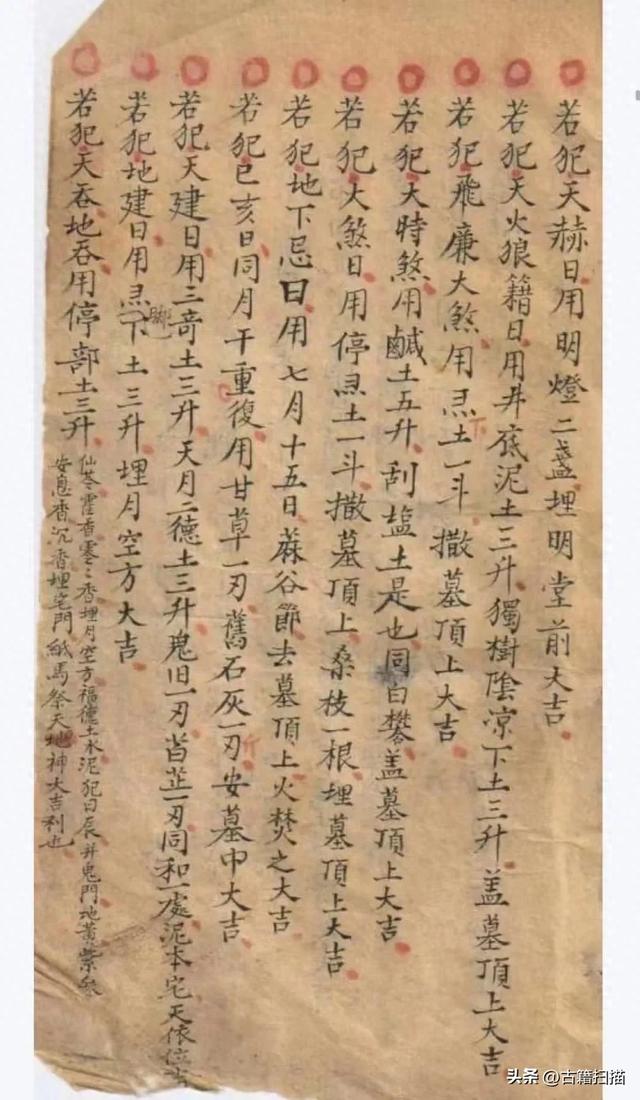 若犯天赫日用明燈二盞埋明堂前大吉
若犯天火狼籍日用井底泥土三升獨樹陰凉下土三升盖墓頂上大吉
若犯飛廉大煞用灶下土一斗撒墓頂上大吉
若犯大時煞用鹹土五升刮塩土是也同白礬盖墓頂上大吉
若犯大煞日用停灶土一斗撒墓頂上桑枝一根埋墓頂上大吉
若犯地下忌日用七月十五日蔴谷節去墓頂上火焚之大吉
若犯巳亥日同月干重復用甘草一刃舊石灰一刃斤安墓中大吉
若犯天建日用三竒土三升天月二德土三升鬼旧一刃苩芷一刃同和一處泥本宅天依位吉
若犯地建日用灶脚下土三升埋月空方大吉
若犯天吞地吞用停部土三升
仙苓霍香零零香埋月空方福德土水泥犯日辰并鬼門地黃紫
安息香沉香埋宅門紙馬祭天地神大吉利也
头条 @古籍扫描